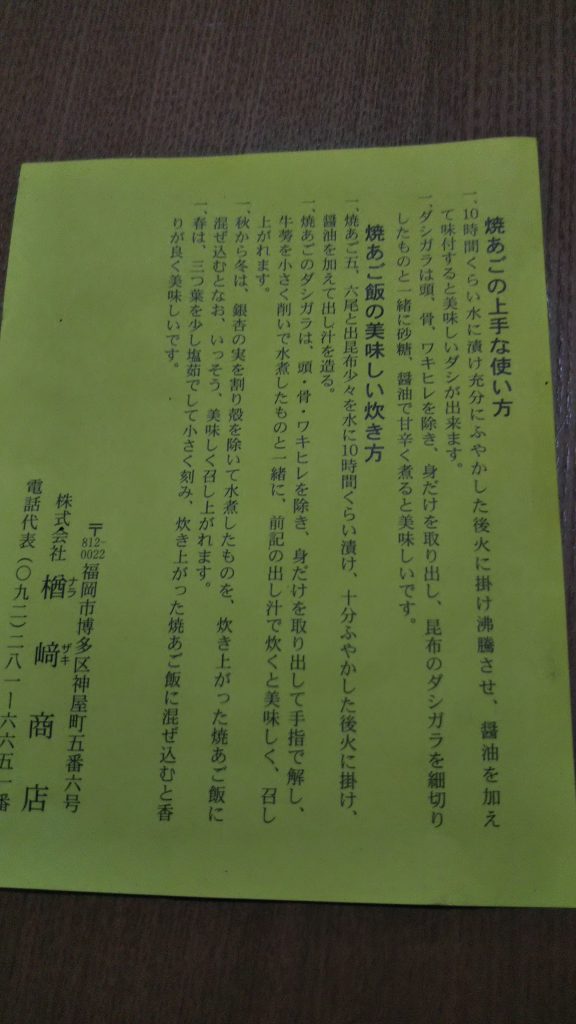 焼あごの上手な使い方
一、10時間くらい水に漬け充分にふやかした後火に掛け沸騰させ、醤油を加え
て味付すると美味しいダシが出来ます。
一、ダシガラは頭、骨、ワキヒレを除き、身だけを取り出し、昆布のダシガラを細切り
したものと一緒に砂糖、醤油で甘辛く煮ると美味しいです。
焼あご飯の美味しい炊き方
一、焼あご五、六尾と出昆布少々を水に10時間くらい漬け、十分ふやかした後火に掛け、
醤油を加えて出し汁を造る。
一、焼あごのダシガラは、頭・骨・ワキヒレを除き、身だけを取り出して手指で解し、
牛蒡を小さく削いで水煮したものと一緒に、前記の出し汁で炊くと美味しく、召し
上がれます。
一、秋から冬は、銀杏の実を割り殻を除いて水煮したものを、炊き上がった焼あご飯に
混ぜ込むとなお、いっそう、美味しく召し上がれます。
一、春は、三つ葉を少し塩茹でして小さく刻み、炊き上がった焼あご飯に混ぜ込むと香
りが良く美味しいです。
〒812-0022 福岡市博多区神屋町五番六号
株式会社 楢﨑商店
ナラ ザキ
電話代表(〇九二)二八一ー六六五一番